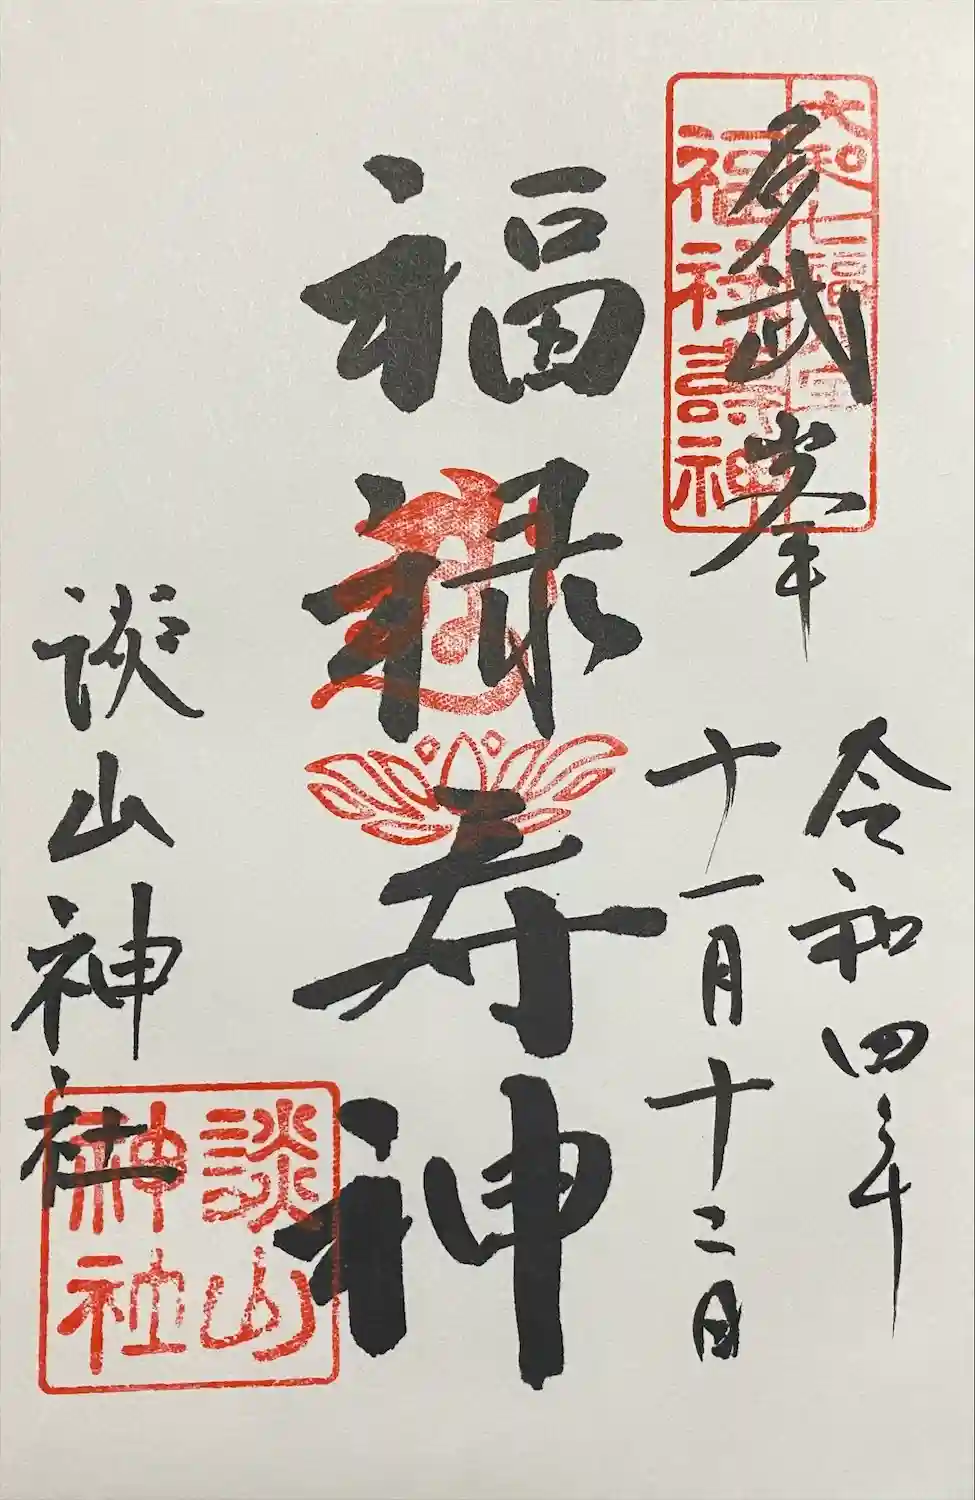 多武峯
大和七福八宝
福禄寿神
令和四年
十一月十二日
福禄寿神
談山神社
談山
神社